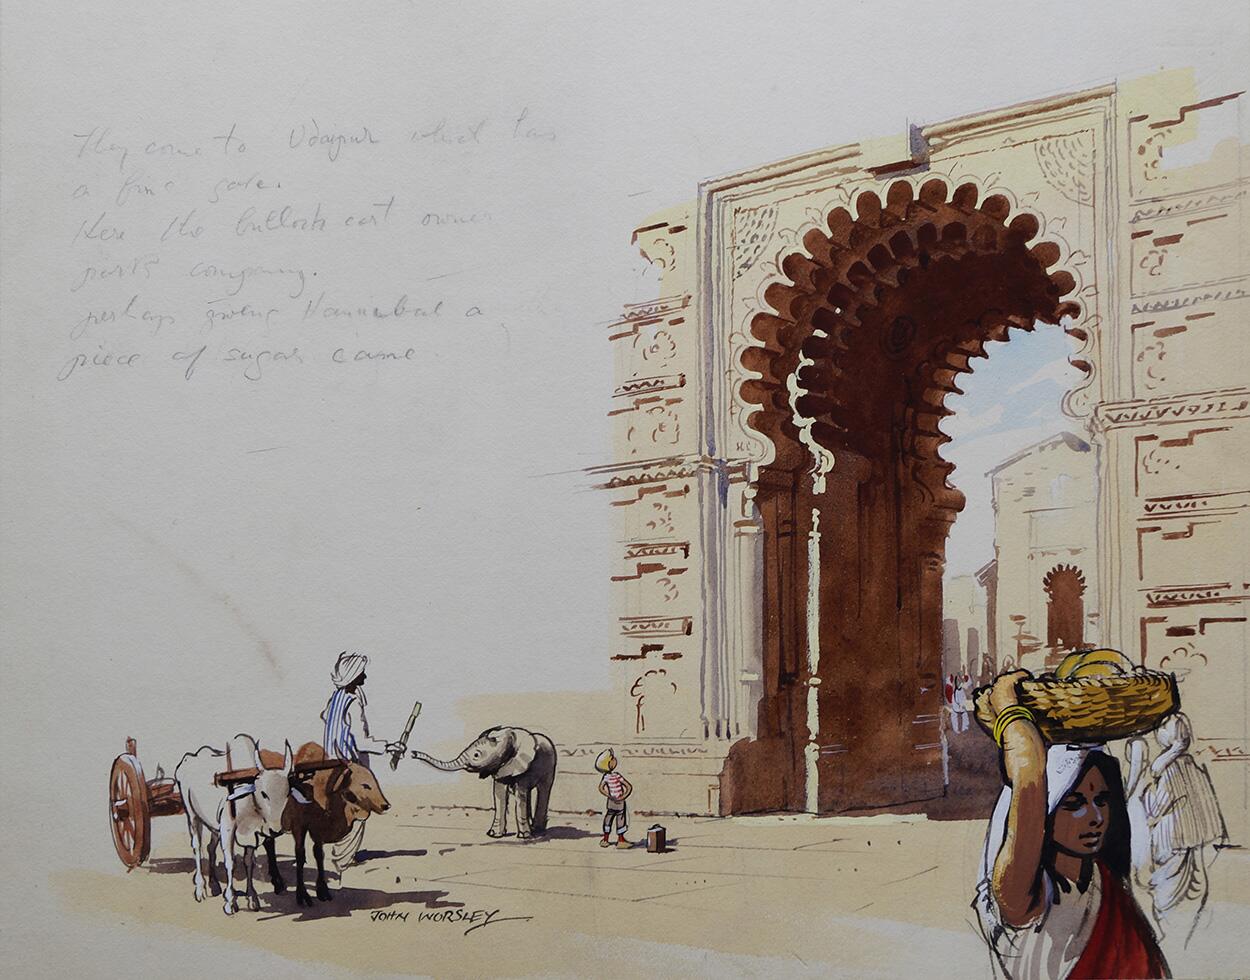 They come to Udaipur which has
a fine gate.
Here the bullock cart owner
parts company.
perhaps giving Hannibal a
piece of sugar cane
JOHN WORSLEY